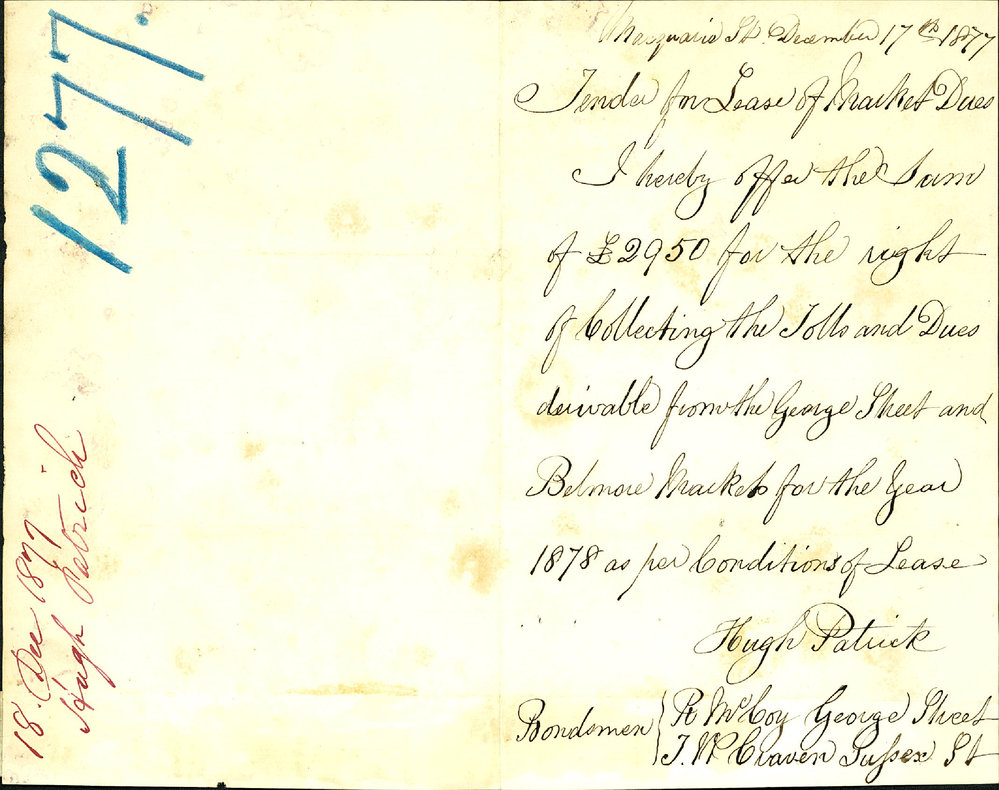 1277.
18. Dec 1877
Hugh Patrick
Macquarie St. December 17th 1877
Tender for Lease of Market Dues
I hereby offer the Sum
of £2950 for the right
of Collecting the Tolls and Dues
derivable from the George Street and
Belmore Markets for the Year
1878 as per Conditions of Lease
Hugh Patrick
Bondsmen { R McCoy George Street
J. W Craven Sussex St